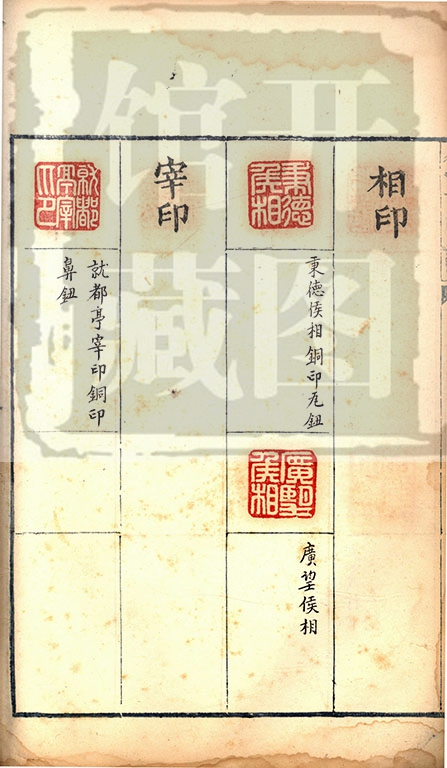 相印
秉德
侯相
秉德侯相銅印瓦鈕
廣望
侯相
廣望侯相
宰印
就都
亭宰
印
就都亭宰印銅印
鼻鈕
开图
馆藏